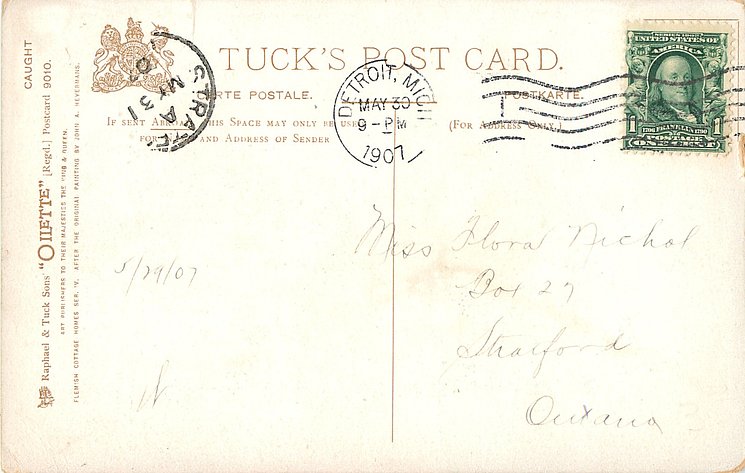 TUCK'S POST CARD.
CARTE POSTALE.
POSTKARTE.
IF SENT ABROAD THIS SPACE MAY ONLY BE USED
FOR NAME AND ADDRESS OF SENDER
(FOR ADDRESS ONLY.)
STRATF
A
MY 31
07
DETROIT, MICH
MAY 30
9-PM
1907
1
SERIES 1902
UNITED STATES OF
AMERICA
1706 FRANKLIN 1790
1 1
ONE CENT
CAUGHT
Raphael & Tuck Sons' "OILETTE" [Regd.] Postcard 9010.
ART PUBLISHERS TO THEIR MAJESTIES THE KING & QUEEN.
FLEMISH COTTAGE HOMES SER. IV. AFTER THE ORIGINAL PAINTING BY JOHN A. HEYERMANS.
5/29/07
Miss Flora Nichol
Box 27
Stratford
Ontario